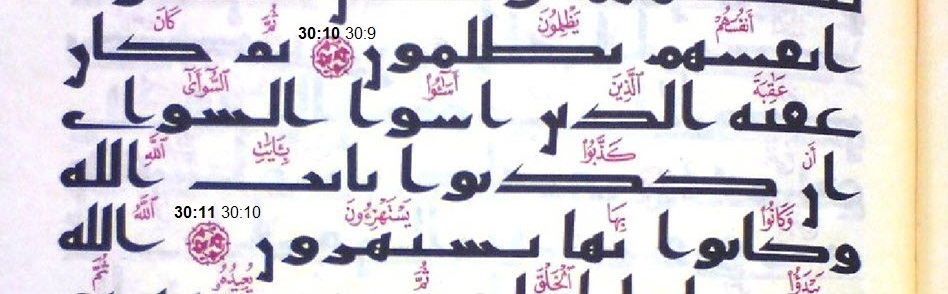 أَنفُسَهُمْ يَظْلِمُونَ 30:9 30:10 ثُمَّ كَانَ
انفسهم يظلمون ثم كان
عَٰقِبَةَ ٱلَّذِينَ أَسَٰٓـُٔوا۟ ٱلسُّوٓأَىٰٓ
عقبه الذين اسوا السواى
أَن كَذَّبُوا۟ بِـَٔايَٰتِ ٱللَّهِ
ان كذبوا بايت الله
وَكَانُوا۟ بِهَا يَسْتَهْزِءُونَ 30:10 30:11 ٱللَّهُ
وكانوا بها يستهزون الله
يَبْدَؤُا۟ ٱلْخَلْقَ ثُمَّ يُعِيدُهُۥ ثُمَّ